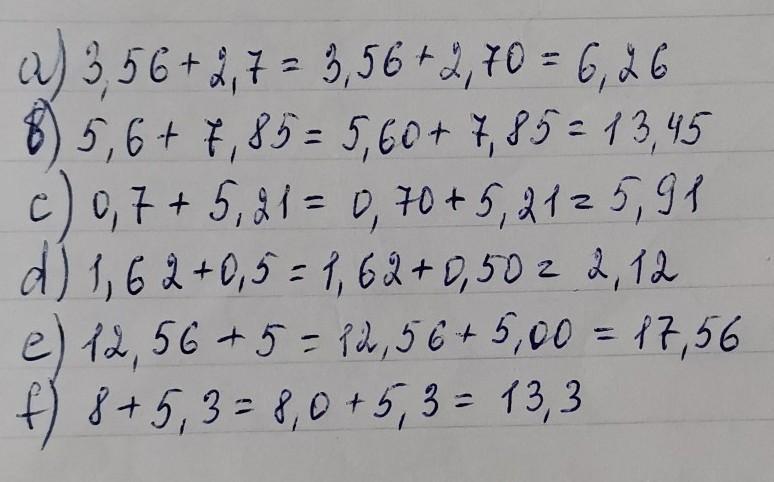 a) 3,56 + 2,7 = 3,56 + 2,70 = 6,26
b) 5,6 + 7,85 = 5,60 + 7,85 = 13,45
c) 0,7 + 5,21 = 0,70 + 5,21 = 5,91
d) 1,62 + 0,5 = 1,62 + 0,50 = 2,12
e) 12,56 + 5 = 12,56 + 5,00 = 17,56
f) 8 + 5,3 = 8,0 + 5,3 = 13,3